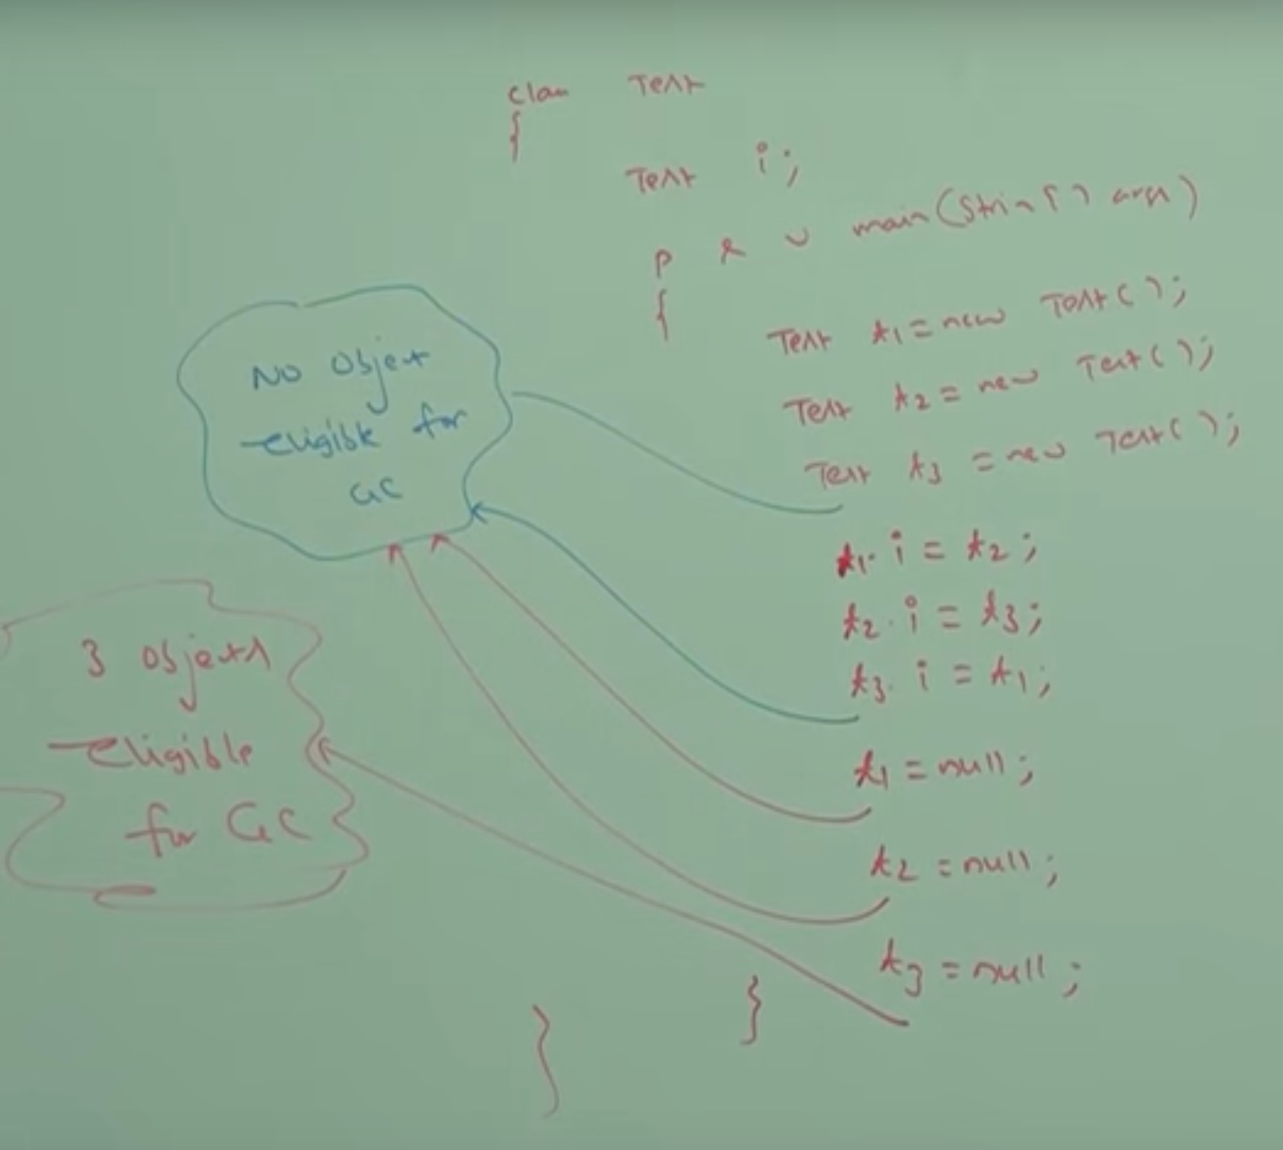 class Test
{
Test i;
p s v main(String[] args)
{
Test t1 = new Test();
Test t2 = new Test();
Test t3 = new Test();
t1.i = t2;
t2.i = t3;
t3.i = t1;
t1 = null;
t2 = null;
t3 = null;
}
}
No Object
eligible for
GC
3 Objects
eligible
for GC